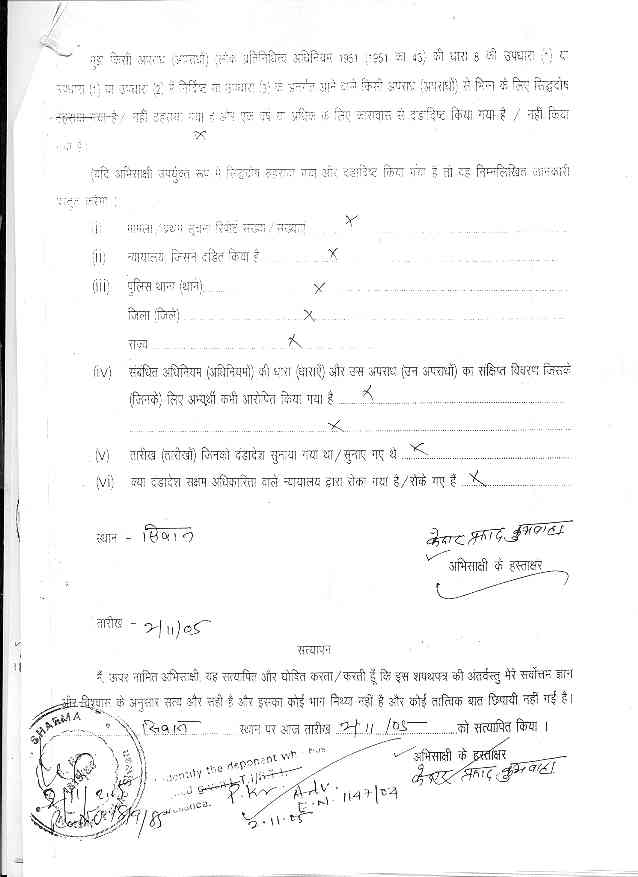 मुझे किसी अपराध (अपराधों) (लोक प्रतिनिधित्व अधिनियम 1951 (1951 का 43) की धारा 8 की उपधारा (1) या
उपधारा (1) या उपधारा (2) में निर्दिष्ट या उपधारा (3) के अन्तर्गत आने वाले किसी अपराध (अपराधों) से भिन्न के लिए सिद्धदोष
ठहराया गया है / नहीं ठहराया गया है और एक वर्ष या अधिक के लिए कारावास से दंडादिष्ट किया गया है / नहीं किया
गया है।
X
(यदि अभिसाक्षी उपर्युक्त रूप में सिद्धदोष ठहराया गया और दंडादिष्ट किया गया है तो वह निम्नलिखित जानकारी
प्रस्तुत करेगा :
(i) मामला/प्रथम सूचना रिपोर्ट संख्या/संख्याएं X
(ii) न्यायालय, जिसने दंडित किया है X
(iii) पुलिस थाना (थाने) X
जिला (जिले) X
राज्य X
(iv) संबंधित अधिनियम (अधिनियमों) की धारा (धाराएँ) और उस अपराध (उन अपराधों) का संक्षिप्त विवरण जिसके
(जिनके) लिए अभ्यर्थी कभी आरोपित किया गया है X
X
(v) तारीख (तारीखों) जिनको दंडादेश सुनाया गया था/सुनाए गए थे X
(vi) क्या दंडादेश सक्षम अधिकारिता वाले न्यायालय द्वारा रोका गया है/रोके गए हैं X
स्थान - सिवान
केदार प्रसाद कुशवाहा
अभिसाक्षी के हस्ताक्षर
तारीख - 2/11/05
सत्यापन
मैं, ऊपर नामित अभिसाक्षी, यह सत्यापित और घोषित करता/करती हूँ कि इस शपथपत्र की अंतर्वस्तु मेरे सर्वोत्तम ज्ञान
और विश्वास के अनुसार सत्य और सही है और इसका कोई भाग मिथ्या नहीं है और कोई तात्विक बात छिपायी नहीं गई है।
सिवान स्थान पर आज तारीख 2/11/05 को सत्यापित किया ।
अभिसाक्षी के हस्ताक्षर
केदार प्रसाद कुशवाहा
SHARMA
identify the deponent wh has
P.Kr. Adv.
E.N. 1147/04
2.11.05